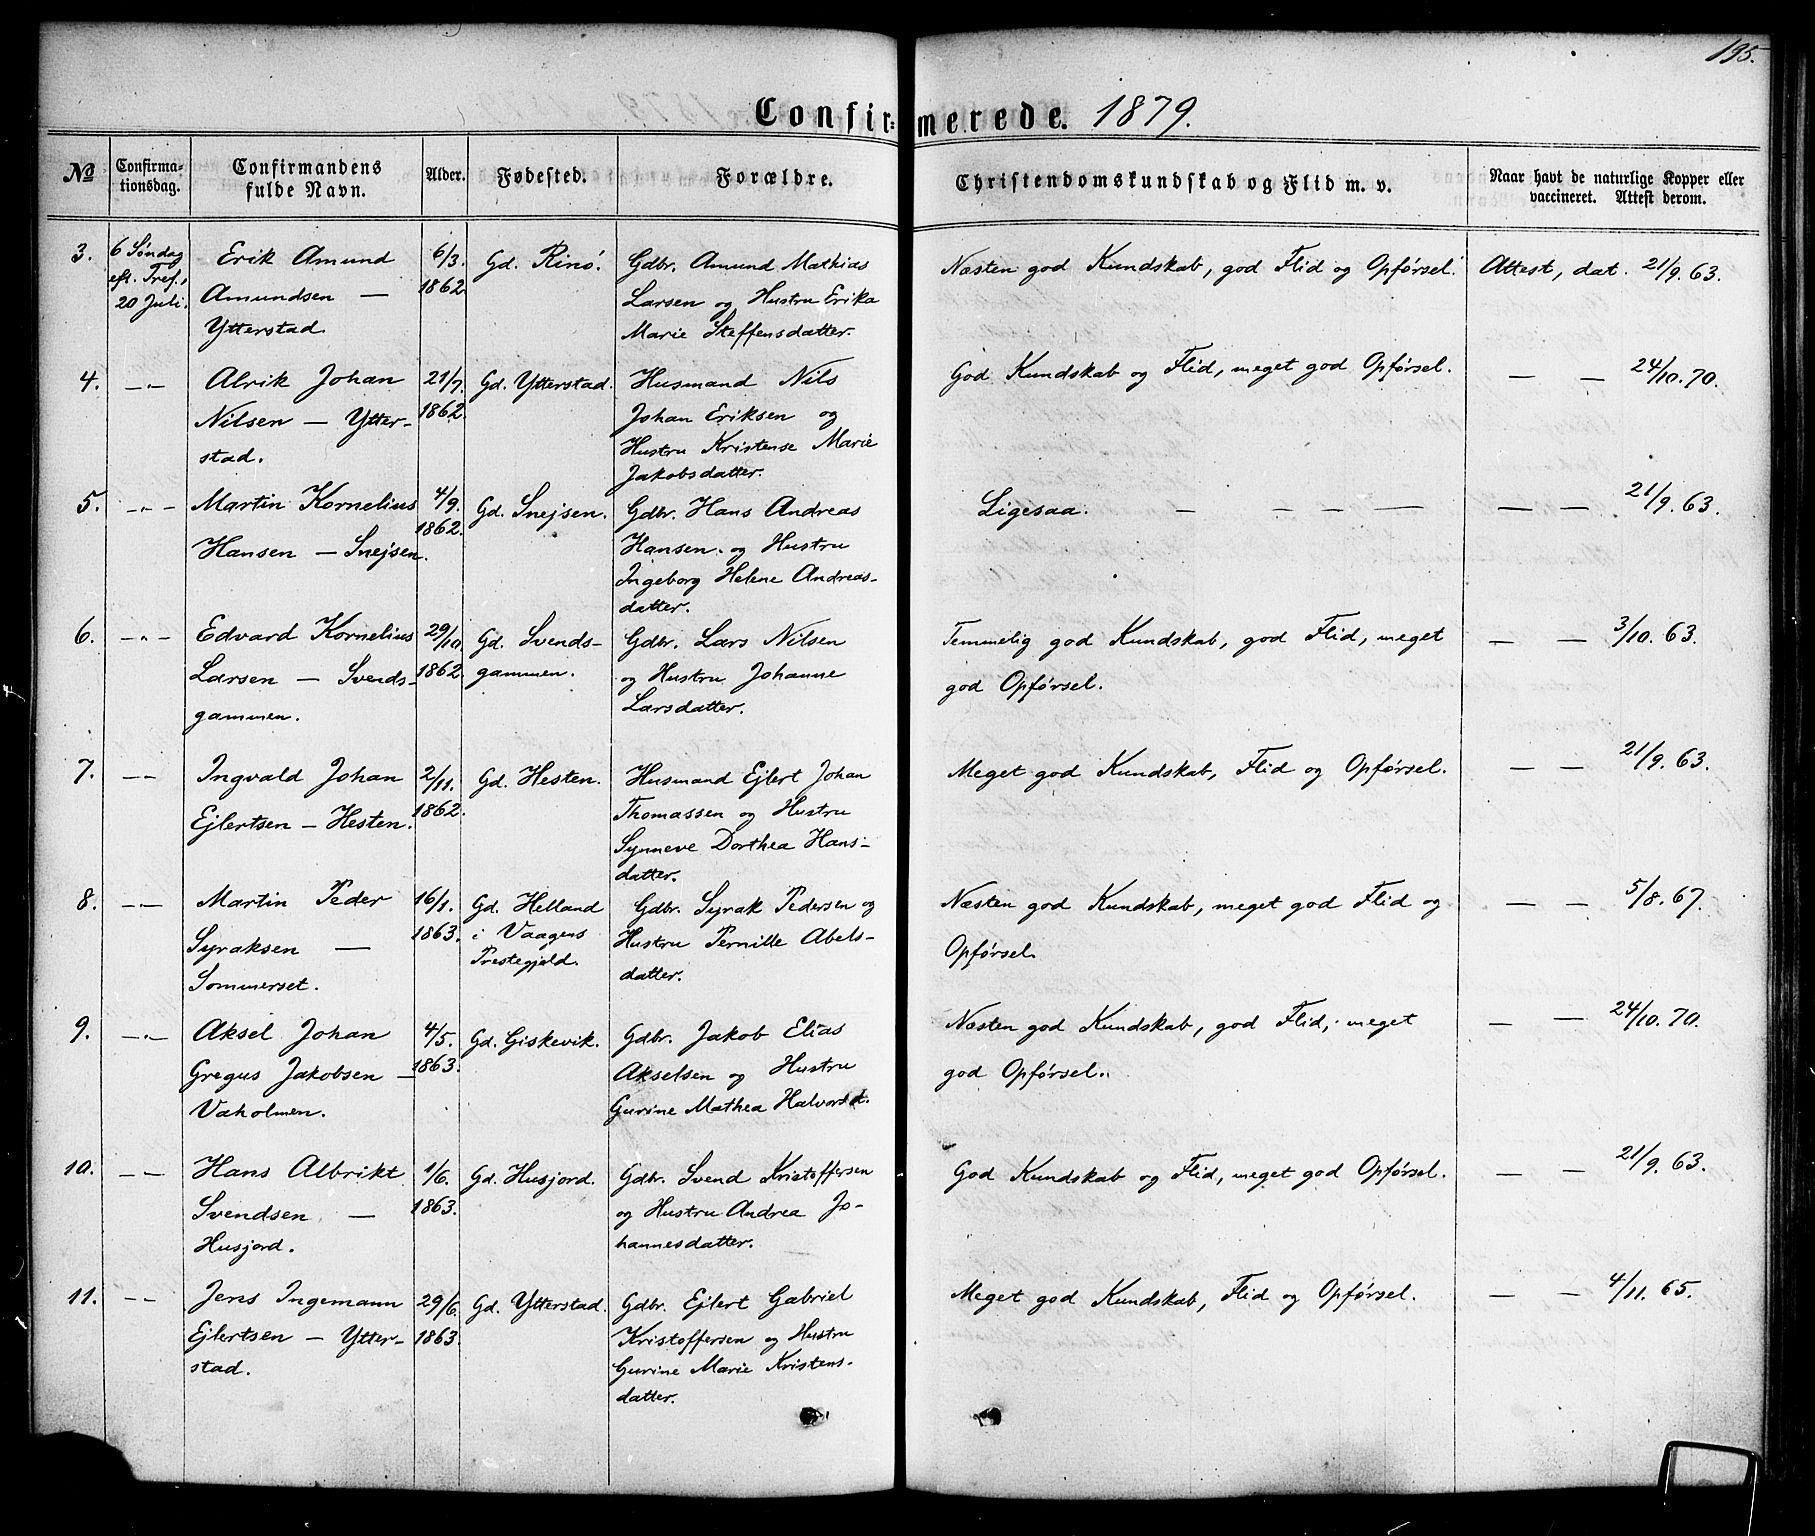 195.
Confirmerede. 1879.
No
Confirma-
tionsdag.
Confirmandens
fulde Navn.
Alder.
Fødested.
Forældre.
Christendomskundskab og Flid m. v.
Naar havt de naturlige Kopper eller
vaccineret. Attest derom.
3.
6 Søndag
eft. Tref.,
20 Juli.
Erik Amund
Amundsen —
Ytterstad.
6/3.
1862
Gd. Rinø.
Gdbr. Amund Mathias
Larsen og Hustru Erika
Marie Steffensdatter.
Næsten god Kundskab, god Flid og Opførsel.
Attest, dat. 21/9. 63.
4.
—"—
Alrik Johan
Nilsen — Ytter-
stad.
21/7.
1862.
Gd. Ytterstad.
Husmand Nils
Johan Eriksen og
Hustru Kristense Marie
Jakobsdatter.
God Kundskab og Flid, meget god Opførsel.
— — 24/10. 70.
5.
—"—
Martin Kornelius
Hansen — Snejsen.
4/9.
1862.
Gd. Snejsen.
Gdbr. Hans Andreas
Hansen og Hustru
Ingeborg Helene Andreas-
datter.
Ligesaa. — — — —
— — 21/9. 63.
6.
—"—
Edvard Kornelius
Larsen — Svends-
gammen.
29/10
1862.
Gd. Svends-
gammen.
Gdbr. Lars Nilsen
og Hustru Johanne
Larsdatter.
Temmelig god Kundskab, god Flid, meget
god Opførsel.
— — 3/10. 63.
7.
—"—
Ingvald Johan
Ejlertsen — Hesten.
2/11.
1862.
Gd. Hesten.
Husmand Ejlert Johan
Thomassen og Hustru
Synneve Dorthea Hans-
datter.
Meget god Kundskab, Flid og Opførsel.
— — 21/9. 63.
8.
—"—
Martin Peder
Syraksen —
Sommerset.
16/1.
1863.
Gd. Helland
i Vaagens
Prestegjæld.
Gdbr. Syrak Pedersen og
Hustru Pernille Abels-
datter.
Næsten god Kundskab, meget god Flid og
Opførsel.
— — 5/8. 67.
9.
—"—
Aksel Johan
Gregus Jakobsen —
Vaholmen.
4/5.
1863.
Gd. Giskevik.
Gdbr. Jakob Elias
Akselsen og Hustru
Gurine Mathea Halvorsd.
Næsten god Kundskab, god Flid, meget
god Opførsel.
— — 24/10. 70.
10.
—"—
Hans Albrikt
Svendsen —
Husjord.
1/6.
1863.
Gd. Husjord.
Gdbr. Svend Kristoffersen
og Hustru Andrea Jo-
hannesdatter.
God Kundskab og Flid, meget god Opførsel.
— — 21/9. 63.
11.
—"—
Jens Ingemann
Ejlertsen — Ytter-
stad.
29/6.
1863.
Gd. Ytterstad.
Gdbr. Ejlert Gabriel
Kristoffersen og Hustru
Gurine Marie Kristens-
datter.
Meget god Kundskab, Flid og Opførsel.
— — 4/11. 65.